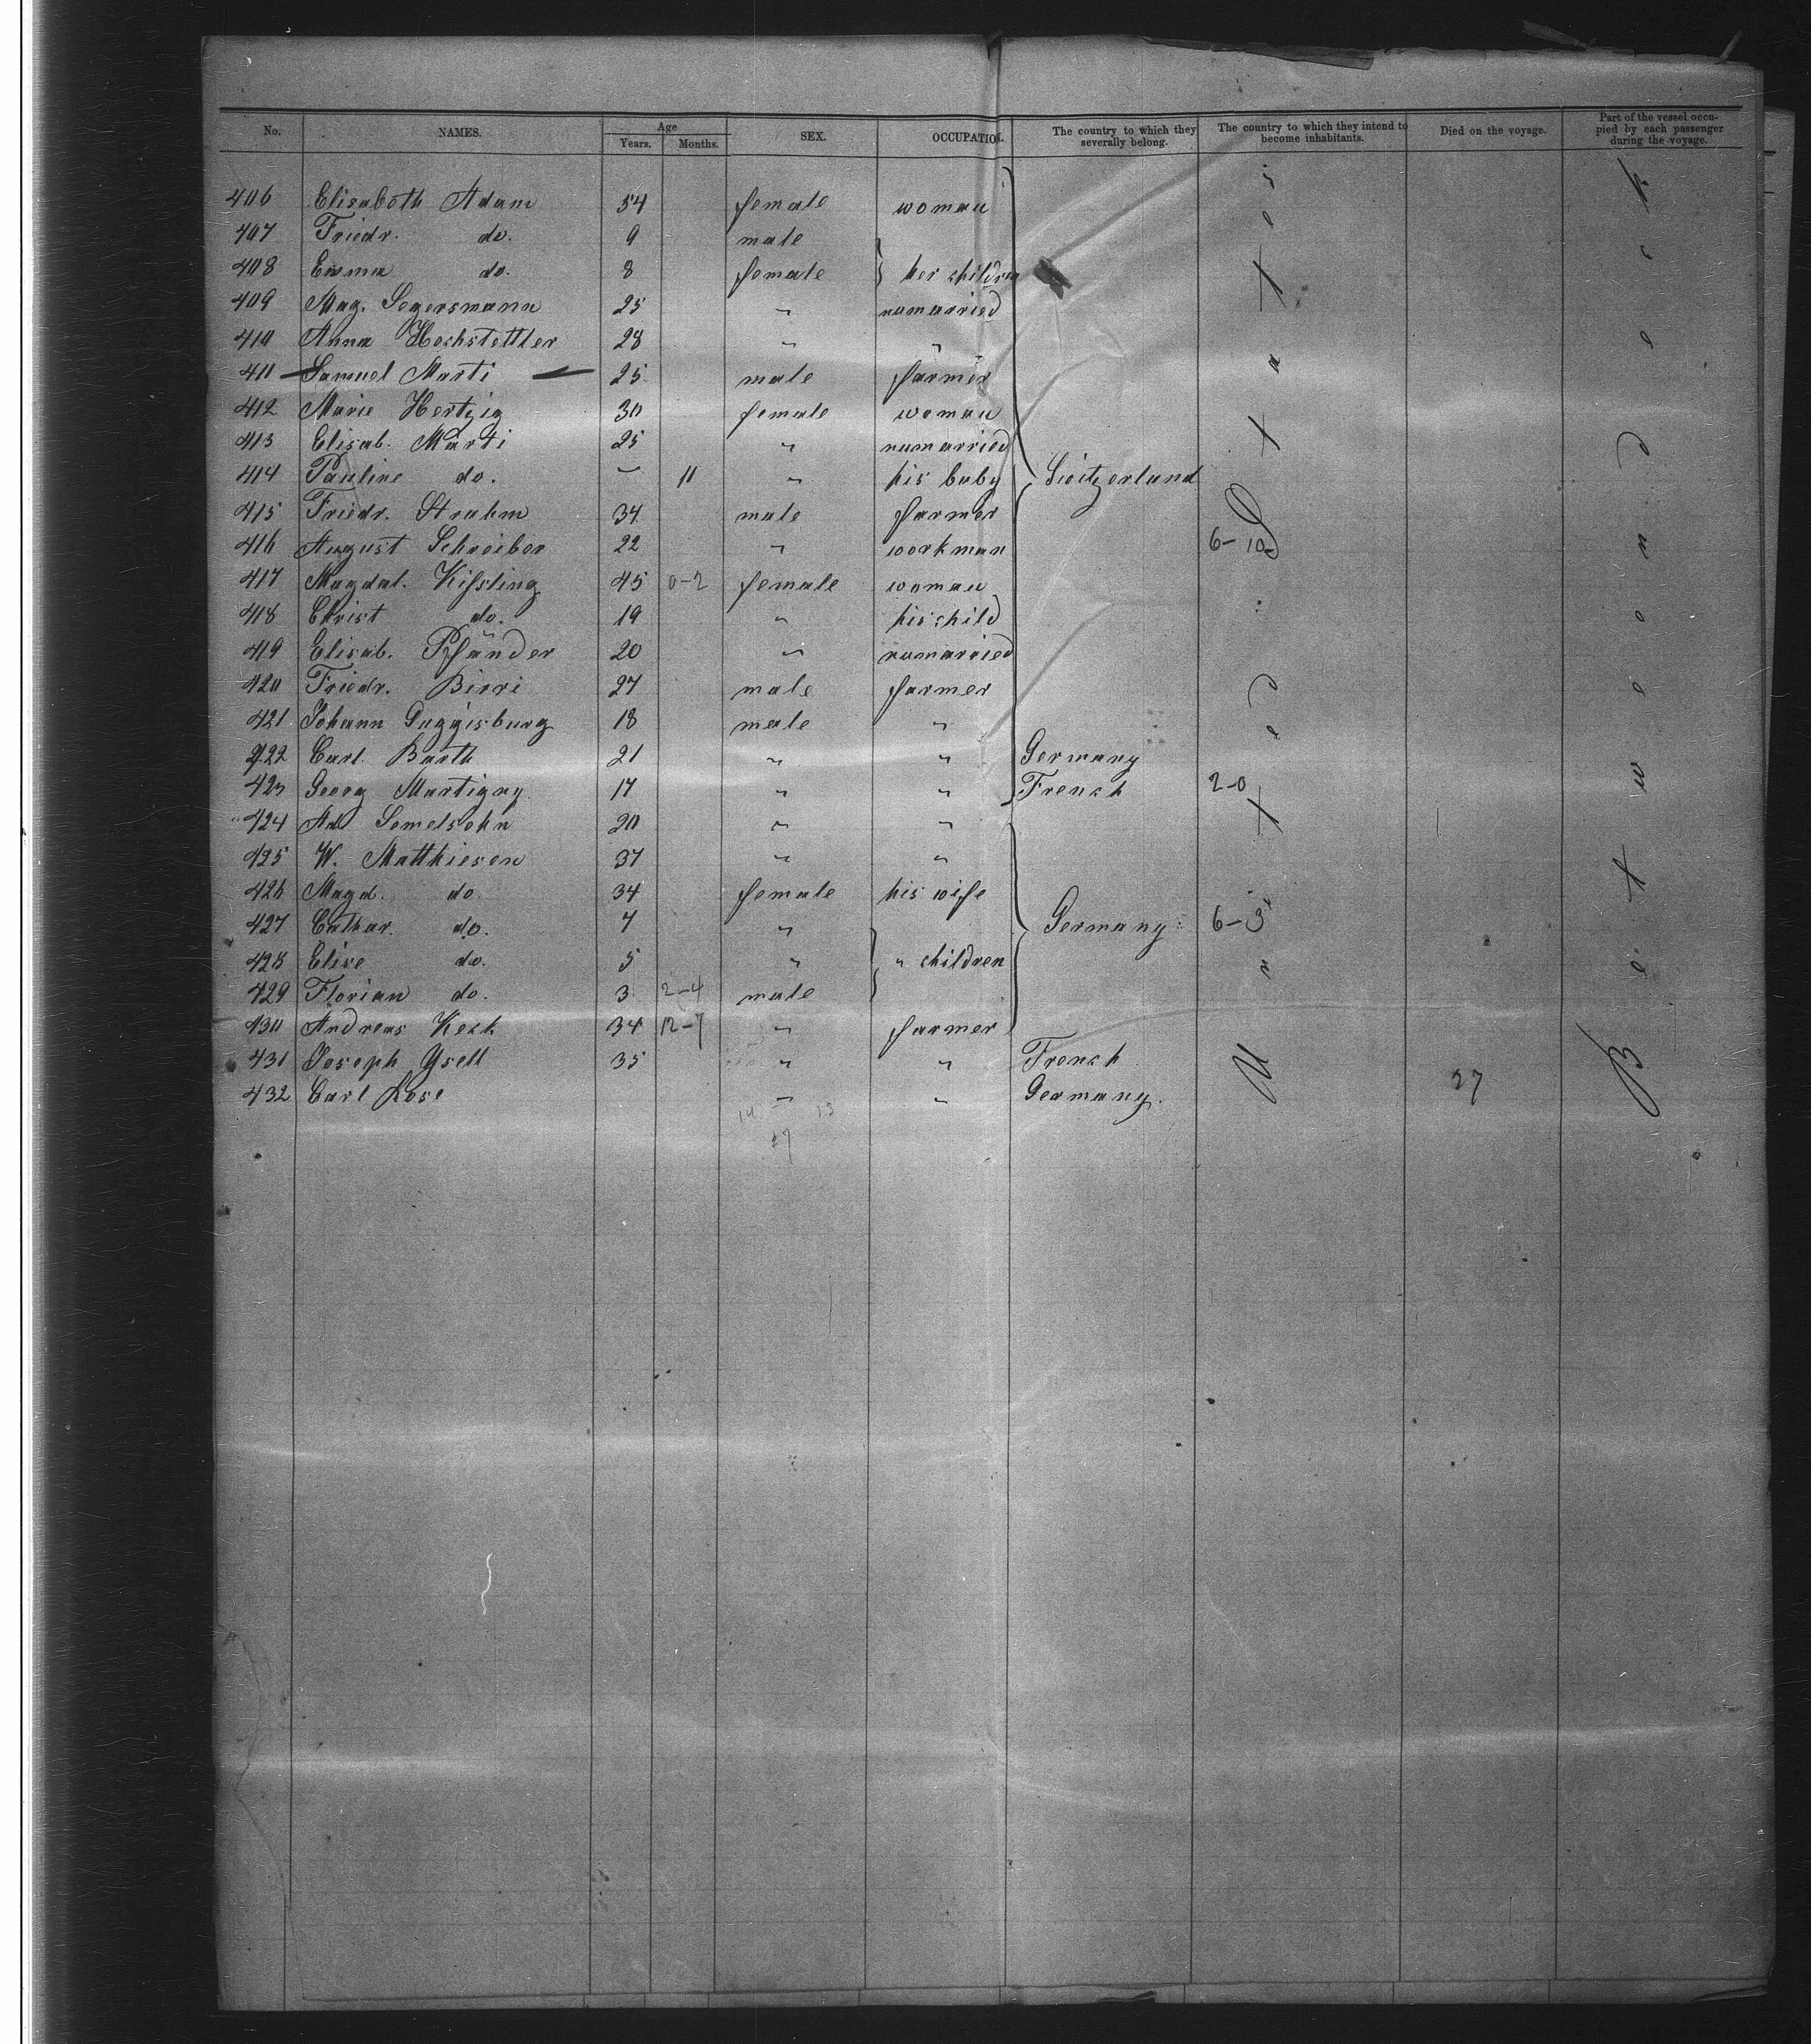 No. NAMES. Age Years. Months. SEX. OCCUPATION. The country to which they severally belong. The country to which they intend to become inhabitants. Died on the voyage. Part of the vessel occupied by each passenger during the voyage.
406 Elisabeth Adam 54 female woman
407 Friedr. do. 9 male
408 Emma do. 8 female her children
409 Mag. Segersmann 25 " unmarried
410 Anna Hochstettler 28 " "
411 Samuel Marti 25 male farmer
412 Marie Hertzig 30 female woman
413 Elisab. Marti 25 " unmarried
414 Pauline do. — 11 " his baby Switzerland
415 Friedr. Strahm 34 male farmer
416 August Schreiber 22 " workman 6-10
417 Magdal. Kissling 45 0-2 female woman
418 Christ do. 19 " his child
419 Elisab. Pfänder 20 " unmarried
420 Friedr. Birri 27 male farmer
421 Johann Guggisburg 18 male "
422 Carl Barth 21 " " Germany
423 Georg Martigny 17 " " French 2-0
424 Ad Somelsohn 20 " "
425 W. Matthiesen 37 " "
426 Magd. do. 34 female his wife
427 Cathar. do. 7 " Germany 6-3
428 Elise do. 5 " " children
429 Florian do. 3 2-4 male
430 Andreas Kech 34 12-7 " farmer
431 Joseph Ysell 35 " " French
432 Carl Rose " " Germany. 27
14 13
27
United States
Between deck